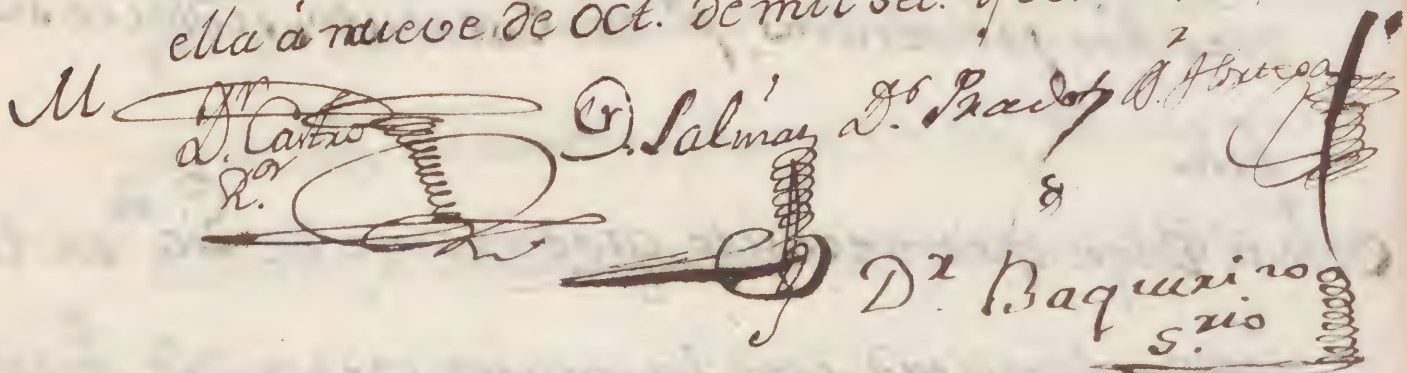 ella á nueve de Oct. de mil set.
M Dr. Castro Ror. G. Salinas Ds. Prado D. Ortega
Dr Baquerizo
S.rio